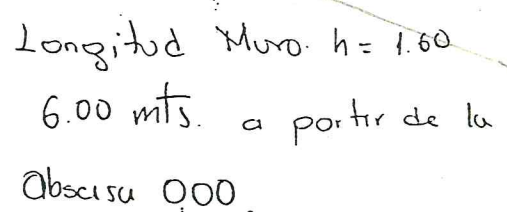 Longitud Muro. h = 1.60
6.00 mts. a partir de la
Abscisa 000.